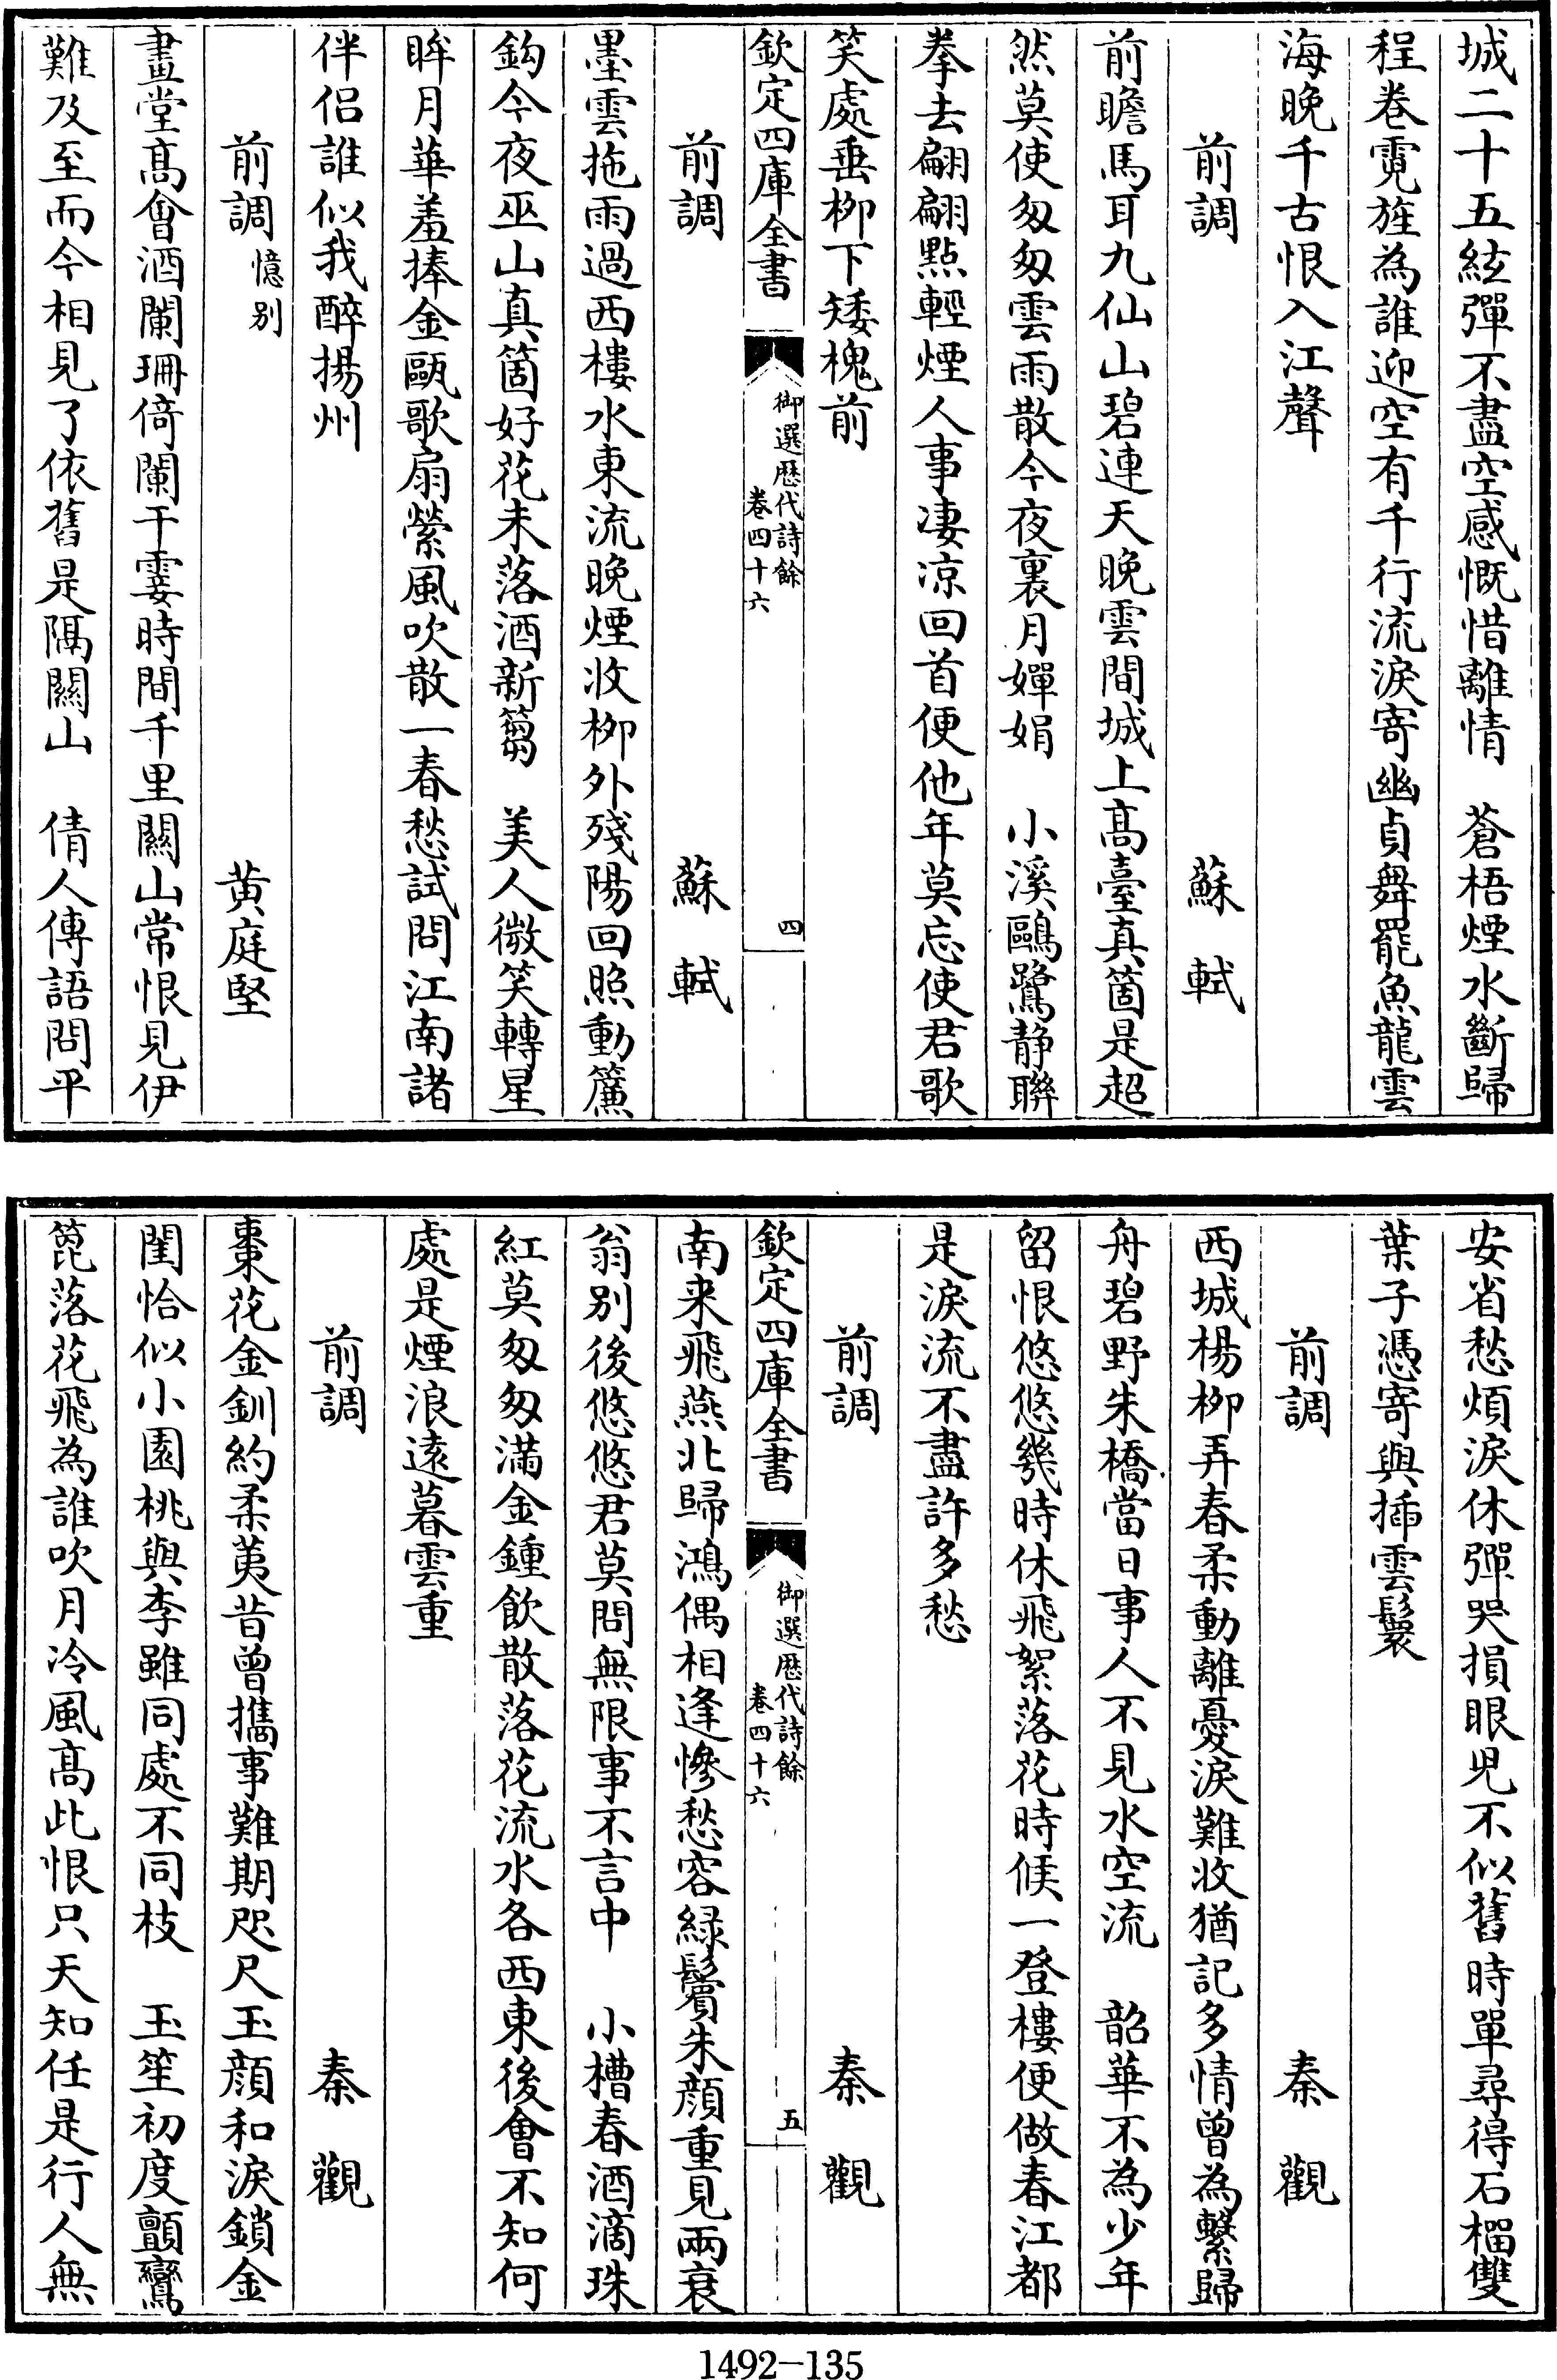 城二十五絃彈不盡空感慨惜離情　蒼梧煙水斷歸
程卷霓旌為誰迎空有千行流淚寄幽貞舞罷魚龍雲
海晚千古恨入江聲
前調　蘇　軾
前瞻馬耳九仙山碧連天晚雲間城上髙臺真箇是超
然莫使匆匆雲雨散今夜裏月嬋娟　小溪鷗鷺静聯
拳去翩翩點輕煙人事凄凉回首便他年莫忘使君歌
笑處垂柳下矮槐前
欽定四庫全書　御選歷代詩餘　卷四十六　四
前調　蘇　軾
墨雲拖雨過西樓水東流晚煙收柳外殘陽回照動簾
鈎今夜巫山真箇好花未落酒新篘　美人微笑轉星
眸月華羞捧金甌歌扇縈風吹散一春愁試問江南諸
伴侣誰似我醉揚州
前調憶别　黄庭堅
畫堂髙會酒闌珊倚闌干霎時間千里關山常恨見伊
難及至而今相見了依舊是隔關山　倩人傳語問平
安省愁煩淚休彈哭損眼兒不似舊時單尋得石榴雙
葉子憑寄與插雲鬟
前調　秦　觀
西城楊柳弄春柔動離憂淚難收猶記多情曽為繫歸
舟碧野朱橋當日事人不見水空流　韶華不為少年
留恨悠悠幾時休飛絮落花時候一登樓便做春江都
是淚流不盡許多愁
前調　秦　觀
欽定四庫全書　御選歷代詩餘　卷四十六　五
南来飛燕北歸鴻偶相逢慘愁容緑鬢朱顔重見兩衰
翁别後悠悠君莫問無限事不言中　小槽春酒滴珠
紅莫匆匆滿金鍾飲散落花流水各西東後㑹不知何
處是煙浪逺暮雲重
前調　秦　觀
棗花金釧約柔荑昔曽攜事難期咫尺玉顔和淚鎖金
閨恰似小園桃與李雖同處不同枝　玉笙初度顫鸞
篦落花飛為誰吹月冷風髙此恨只天知任是行人無
1492—135